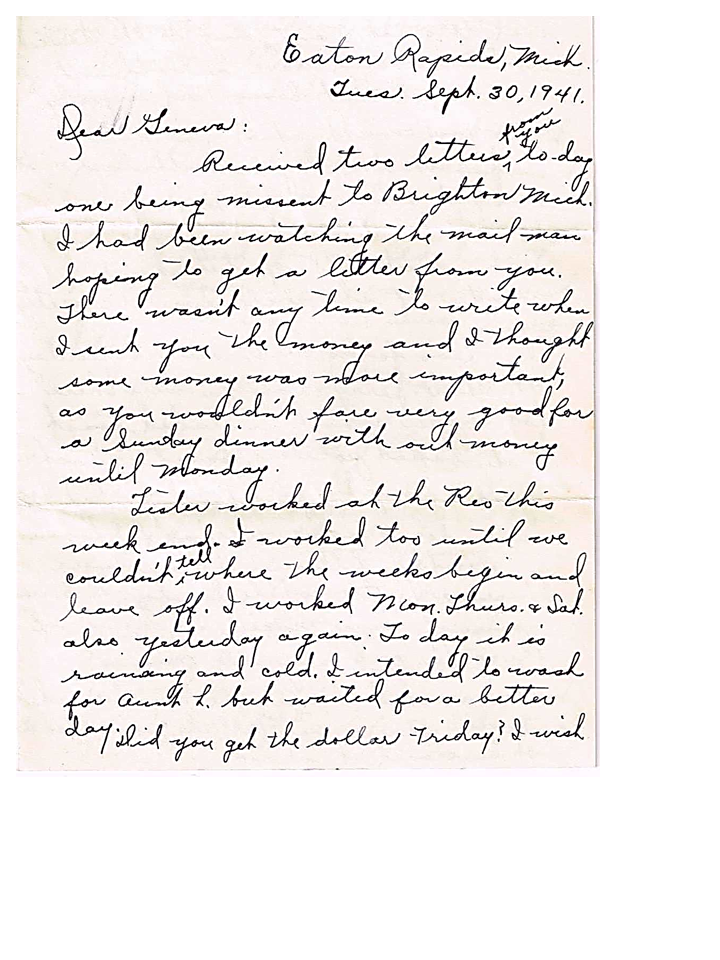 Eaton Rapids, Mich.
Tues. Sept. 30, 1941.
Dear Geneva:
Received two letters from you to-day
one being missent to Brighton Mich.
I had been watching the mail man
hoping to get a letter from you.
There wasn't any time to write when
I sent you the money and I thought
some money was more important,
as you wouldn't fare very good for
a Sunday dinner with out money
until Monday.
Lister worked at the Reo this
week end. I worked too until we
couldn't tell where the weeks begin and
leave off. I worked Mon. Thurs. & Sat.
also yesterday again. To day it is
raining and cold. I intended to wash
for Aunt L. but waited for a better
day. Did you get the dollar Friday? I wish